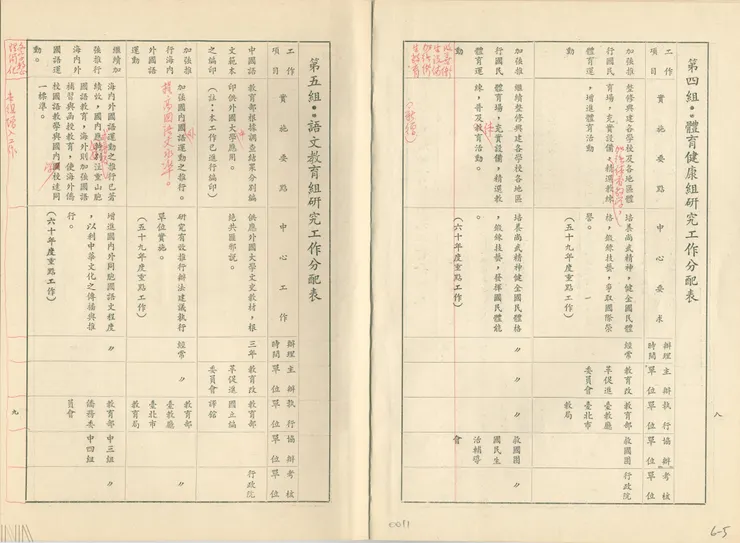 第四組：體育健康組研究工作分配表
工作項目
實施要點
中心要求
辦理時間
主辦單位
執行單位
協辦單位
考核單位
加強推
行國民
體育運
動。
整修興建各學校及各地區體
育場，充實設備，精選教練
，增進體育活動
培養尚武精神，健全國民體
格，鍛鍊技藝，爭取國際榮
譽。
（五十九年度重點工作）
經常
教育改
革促進
委員會
教育部
臺教廳
臺北市
教局
救國團
行政院
加強推
行國民
體育運
動。
繼續整修興建各學校各地區
體育場，充實設備，精選教
練，普及教育活動。
培養尚武精神，健全國民體格
，鍛鍊技藝，發揮國民體能
。
（六十年度重點工作）
〃
〃
〃
救國團
國民生
活輔導
會
〃
八
第五組：語文教育組研究工作分配表
工作項目
實施要點
中心工作
辦理時間
主辦單位
執行單位
協辦單位
考核單位
中國語
文範本
之編印
教育部根據調查結果分別編
印供外國大學應用。
（註：本工作已進行編印）
供應外國大學文史教材，根
絕共匪邪說。
三年
教育改
革促進
委員會
教育部
國立編
譯館
行政院
加強推
行海內
外國語
運動
加強國內國語運動之推行。
提高國語文水準。
研究有效推行辦法建議執行
單位實施。
（五十九年度重點工作）
經常
〃
教育部
臺教廳
臺北市
教育局
〃
繼續加
強推行
海內外
國語運
動。
海內外國語運動之推行已著
績效，國內應特別注重山胞
國語教育，海外則加強國語
補習與函授教育，使海外僑
校國語教學與國內學校達同
一標準。
增進國內外同胞國語文程度
，以利中華文化之傳播與推
行。
（六十年度重點工作）
〃
〃
教育部
僑務委
員會
中三組
中四組
〃
九
0011
6-5